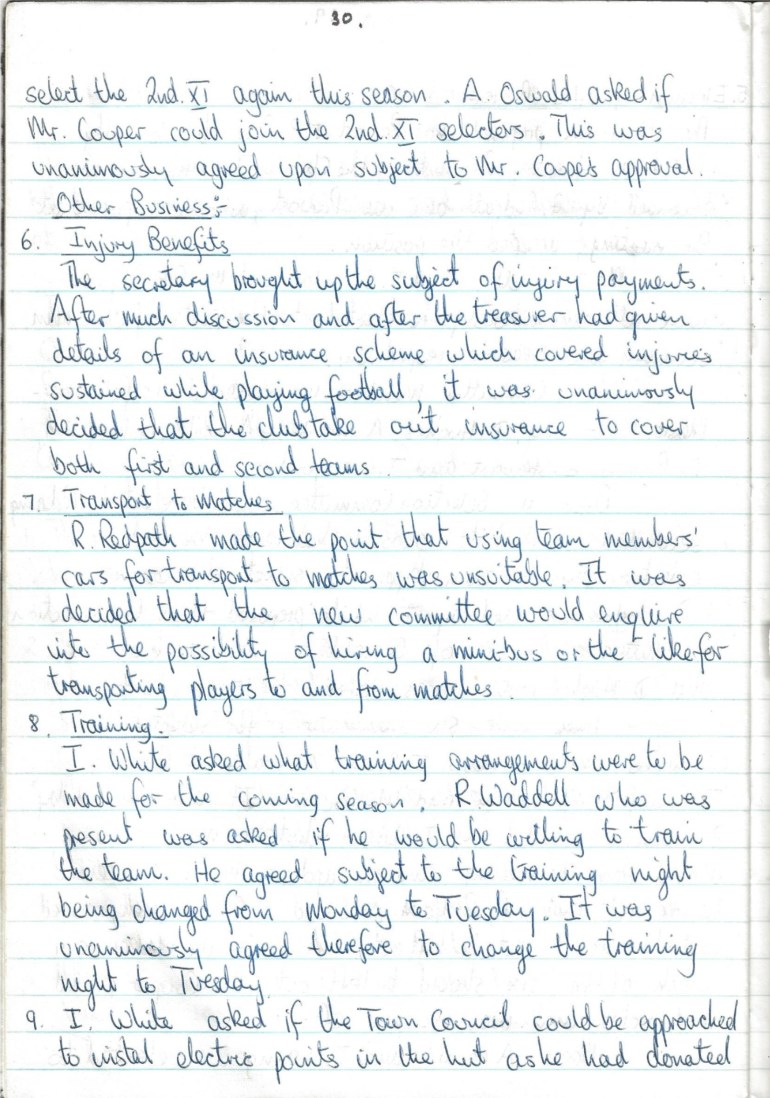 30.
select the 2nd. XI again this season. A. Oswald asked if
Mr. Couper could join the 2nd. XI selectors. This was
unanimously agreed upon subject to Mr. Coupe's approval.
Other Business:-
6. Injury Benefits
The secretary brought up the subject of injury payments.
After much discussion and after the treasurer had given
details of an insurance scheme which covered injuries
sustained while playing football, it was unanimously
decided that the club take out insurance to cover
both first and second teams
7. Transport to Matches
R. Redpath made the point that using team members'
cars for transport to matches was unsuitable. It was
decided that the new committee would enquire
into the possibility of hiring a mini-bus or the like for
transporting players to and from matches.
8. Training.
I. White asked what training arrangements were to be
made for the coming season. R. Waddell who was
present was asked if he would be willing to train
the team. He agreed subject to the training night
being changed from Monday to Tuesday. It was
unanimously agreed therefore to change the training
night to Tuesday.
9. I. White asked if the Town Council could be approached
to instal electric points in the hut as he had donated